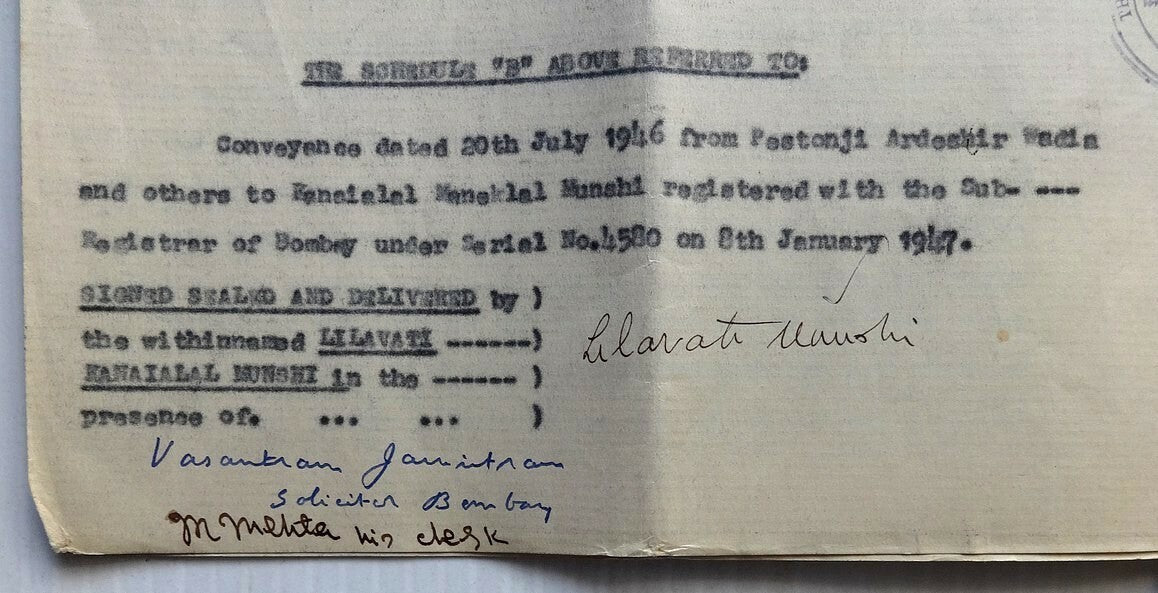 TH
THE SCHEDULE "B" ABOVE REFERRED TO:
Conveyance dated 20th July 1946 from Pestonji Ardeshir Wadia
and others to Kanaialal Maneklal Munshi registered with the Sub- ---
Registrar of Bombay under Serial No.4580 on 8th January 1947.
SIGNED SEALED AND DELIVERED by )
the withinnamed LILAVATI ------)
KANAIALAL MUNSHI in the ------ )
presence of. ... ... )
Lilavati Munshi
Vasantram Jamietram
Solicitor Bombay
M Mehta his clerk